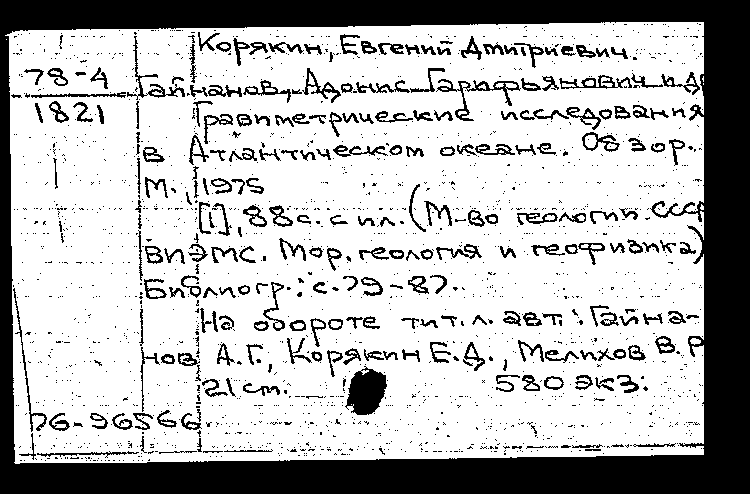 Корякин, Евгений Дмитриевич.
78-4 Гайнанов, Адонис Гарифьянович и др
1821 Гравиметрические исследования
в Атлантическом океане. Обзор.
М., 1975
[1], 88 с. с ил. (М-во геологии СССР
ВИЭМС. Мор. геология и геофизика)
Библиогр.: с. 79-87.
На обороте тит. л. авт.: Гайна-
нов А.Г., Корякин Е.Д., Мелихов В.Р
21 см. 580 экз.
76-96566